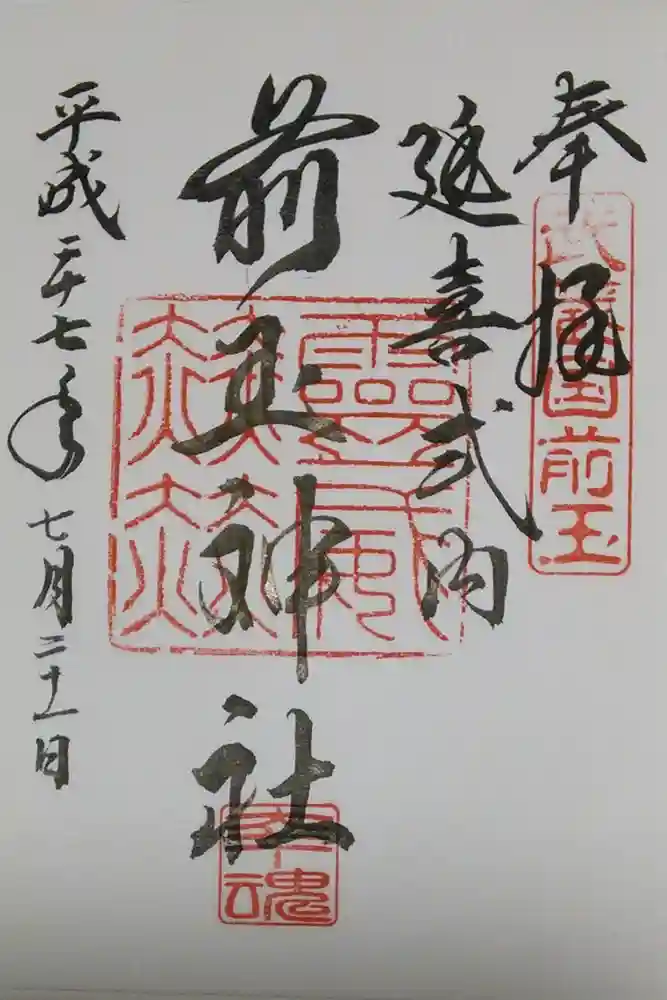 奉拝
武蔵国前玉
延喜式内
前玉神社
靈威赫赫
幸魂
平成二十七年七月二十一日